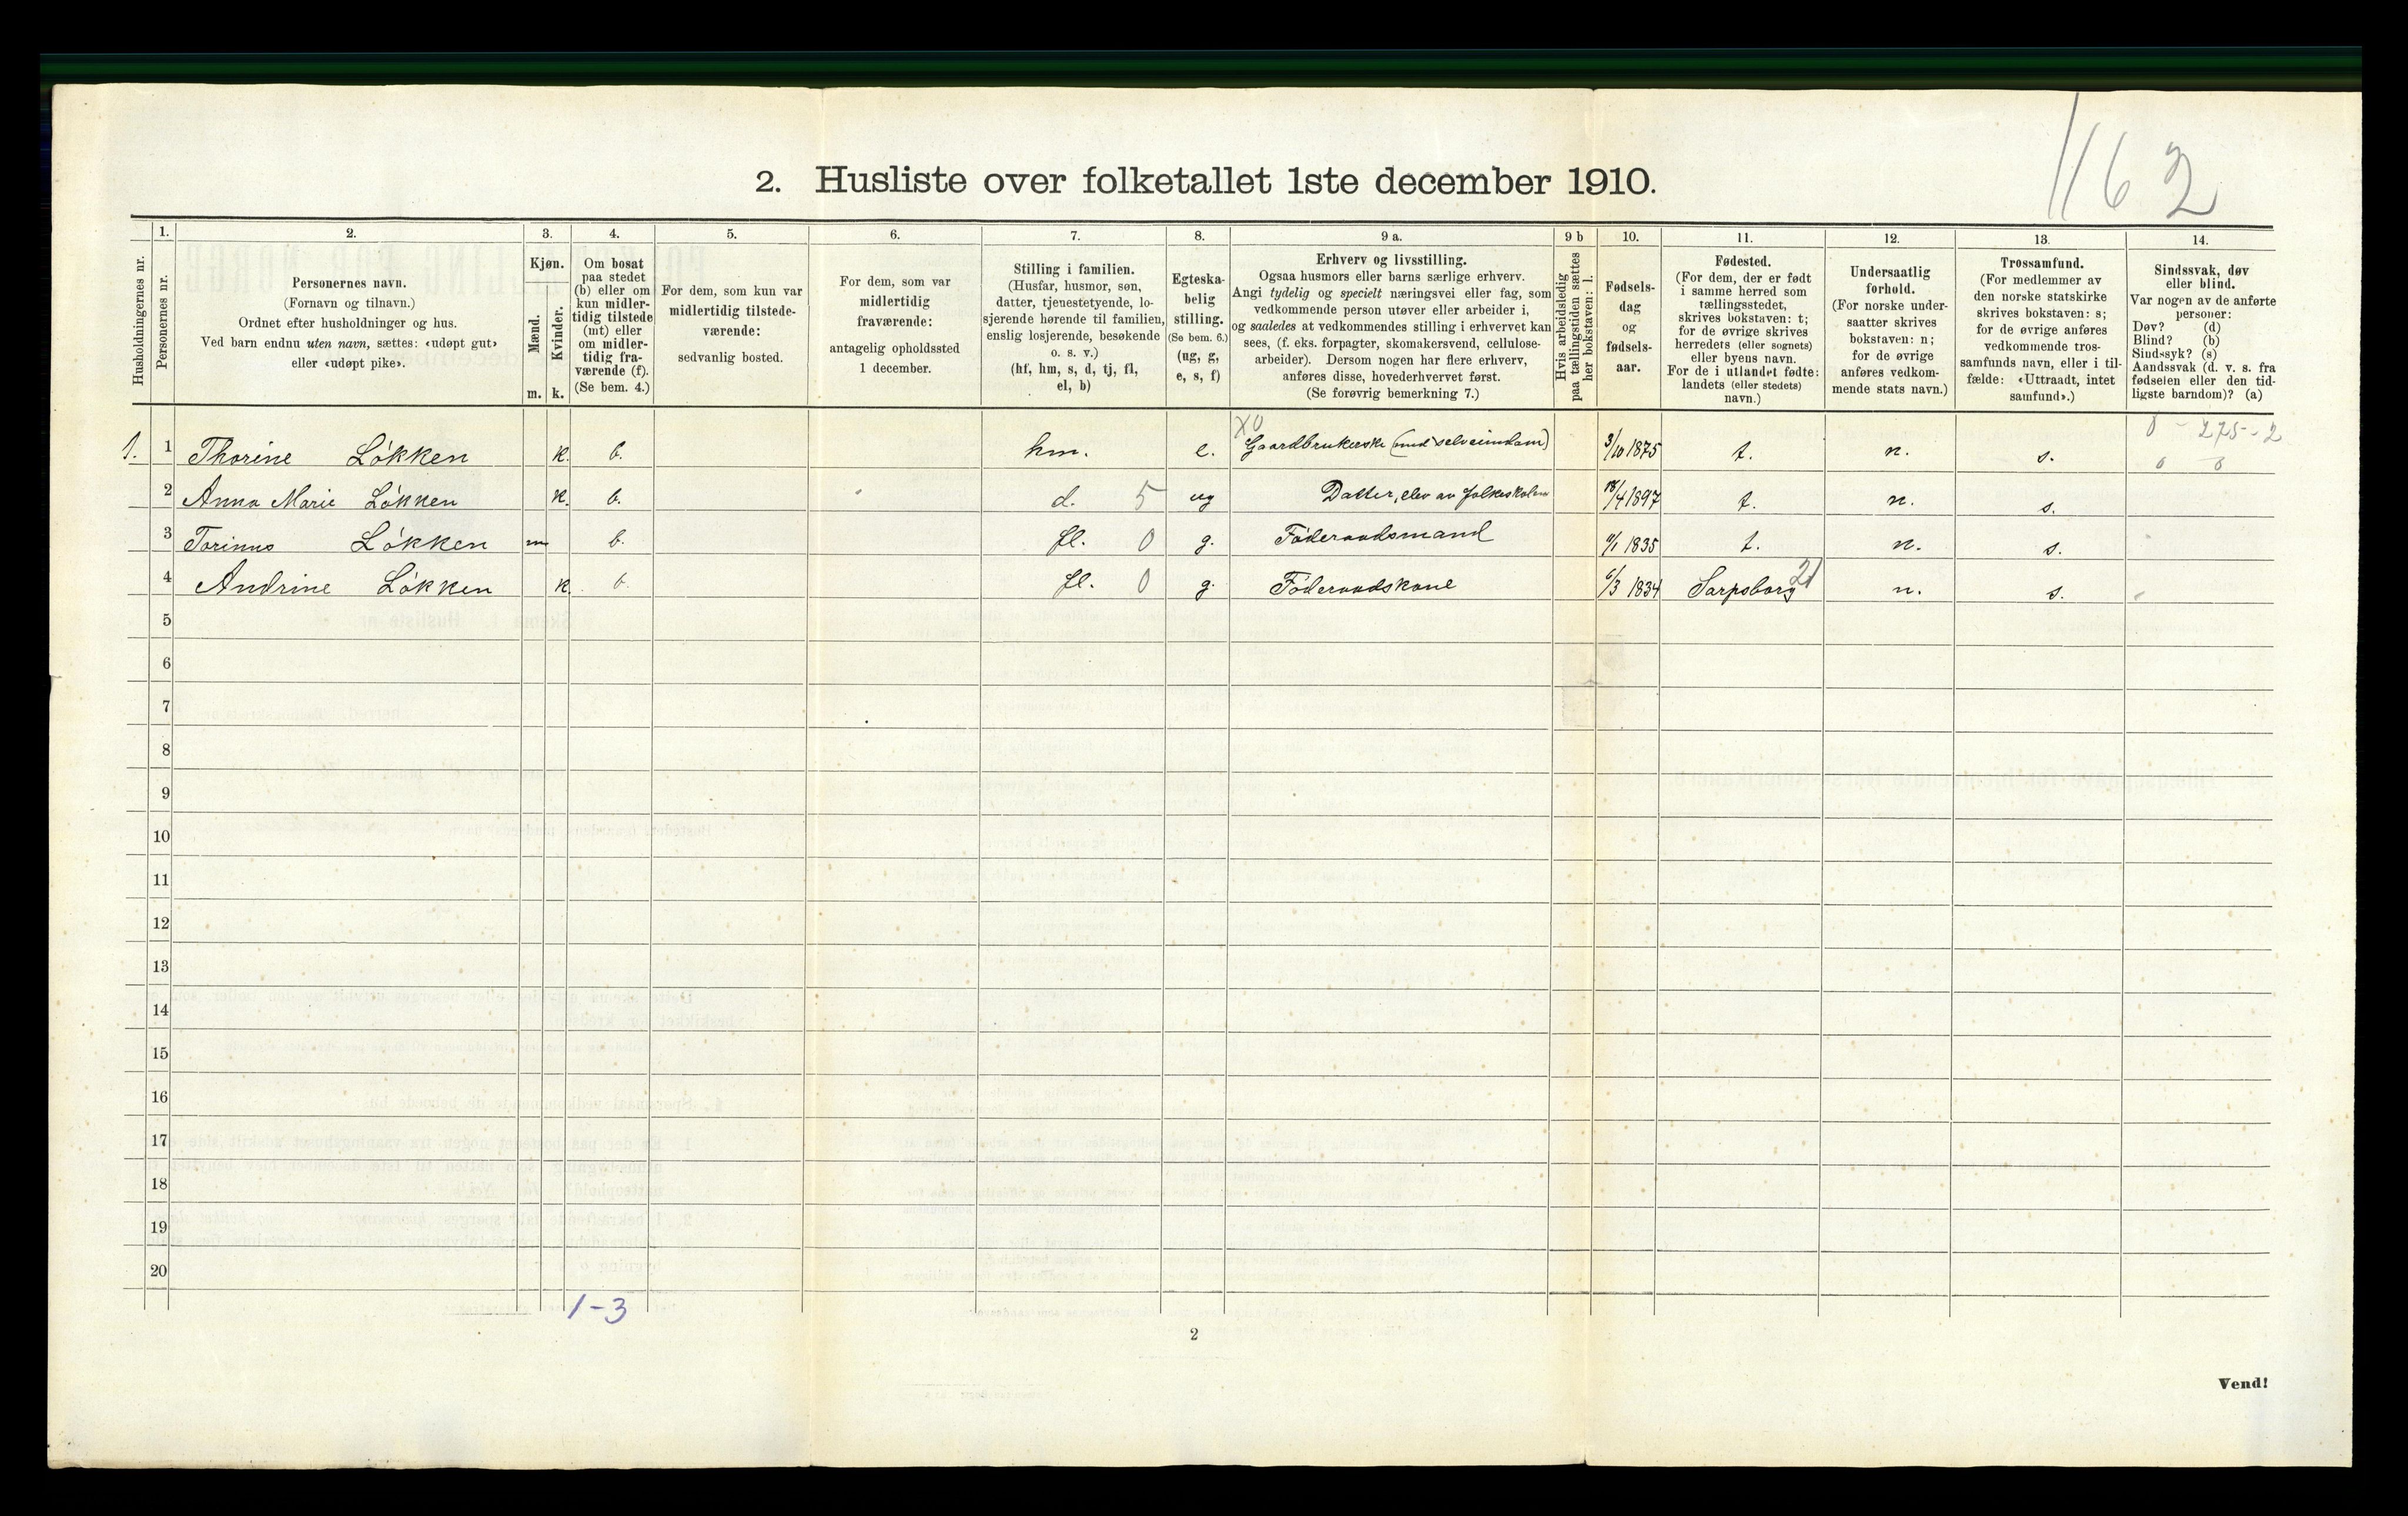 1162
2. Husliste over folketallet 1ste december 1910.
Husholdningernes nr.
1.
Personernes nr.
2.
Personernes navn.
(Fornavn og tilnavn.)
Ordnet efter husholdninger og hus.
Ved barn endnu uten navn, sættes: «udøpt gut»
eller «udøpt pike».
3.
Kjøn.
Mænd.
Kvinder.
m. k.
4.
Om bosat
paa stedet
(b) eller om
kun midler-
tidig tilstede
(mt) eller
om midler-
tidig fra-
værende (f).
(Se bem. 4.)
5.
For dem, som kun var
midlertidig tilstede-
værende:
sedvanlig bosted.
6.
For dem, som var
midlertidig
fraværende:
antagelig opholdssted
1 december.
7.
Stilling i familien.
(Husfar, husmor, søn,
datter, tjenestetyende, lo-
sjerende hørende til familien,
enslig losjerende, besøkende
o. s. v.)
(hf, hm, s, d, tj, fl,
el, b)
8.
Egteska-
belig
stilling.
(Se bem. 6.)
(ug, g,
e, s, f)
9 a.
Erhverv og livsstilling.
Ogsaa husmors eller barns særlige erhverv.
Angi tydelig og specielt næringsvei eller fag, som
vedkommende person utøver eller arbeider i,
og saaledes at vedkommendes stilling i erhvervet kan
sees, (f. eks. forpagter, skomakersvend, cellulose-
arbeider). Dersom nogen har flere erhverv,
anføres disse, hovederhvervet først.
(Se forøvrig bemerkning 7.)
9 b
Hvis arbeidsledig
paa tællingstiden sættes
her bokstaven: l.
10.
Fødsels-
dag
og
fødsels-
aar.
11.
Fødested.
(For dem, der er født
i samme herred som
tællingsstedet,
skrives bokstaven: t;
for de øvrige skrives
herredets (eller sognets)
eller byens navn.
For de i utlandet fødte:
landets (eller stedets)
navn.)
12.
Undersaatlig
forhold.
(For norske under-
saatter skrives
bokstaven: n;
for de øvrige
anføres vedkom-
mende stats navn.)
13.
Trossamfund.
(For medlemmer av
den norske statskirke
skrives bokstaven: s;
for de øvrige anføres
vedkommende tros-
samfunds navn, eller i til-
fælde: «Uttraadt, intet
samfund».)
14.
Sindssvak, døv
eller blind.
Var nogen av de anførte
personer:
Døv? (d)
Blind? (b)
Sindssyk? (s)
Aandssvak (d. v. s. fra
fødselen eller den tid-
ligste barndom)? (a)
X0 0 - 275 - 2
1. 1 Thorine Løkken k. b. hm. e. Gaardbrukerske (med selveiendom) 3/10 1875 t. n. s. 0 0
2 Anna Marie Løkken k. b. d. 5 ug Datter, elev av folkeskolen 18/4 1897 t. n. s.
3 Torinus Løkken m b. fl. 0 g. Føderaadsmand /1 1835 t. n. s.
4 Andrine Løkken k. b. fl. 0 g. Føderaadskone 6/3 1834 Sarpsborg 21 n. s.
5
6
7
8
9
10
11
12
13
14
15
16
17
18
19
20
1-3
2
Vend!